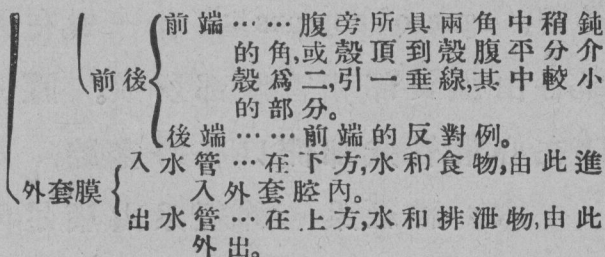 前端……腹旁所具兩角中稍鈍
的角,或殼頂到殼腹平分介
前後
殼爲二,引一垂線,其中較小
的部分。
後端……前端的反對例。
入水管…在下方,水和食物,由此進
外套膜
入外套腔內。
出水管…在上方,水和排泄物,由此
外出。